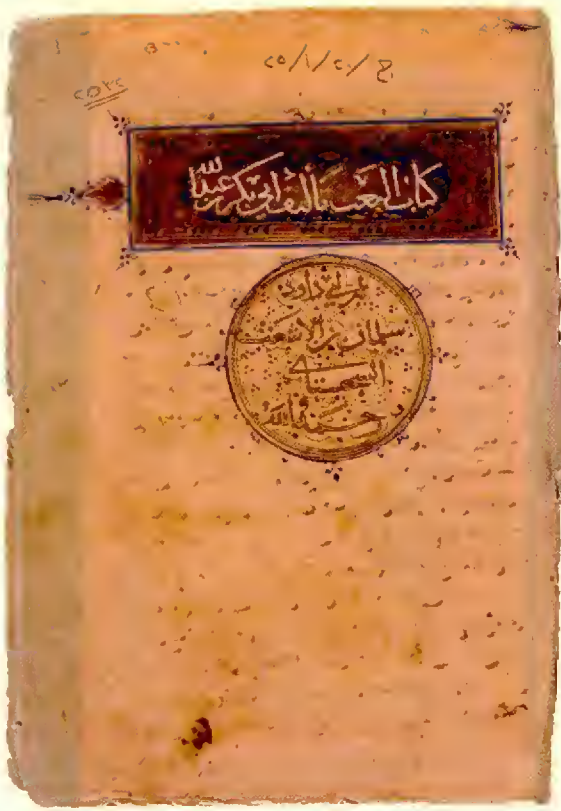 كتاب البعث تأليف أبي بكر عبد الله
بن أبي داود
سليمان بن الأشعث
السجستاني
رحمه الله